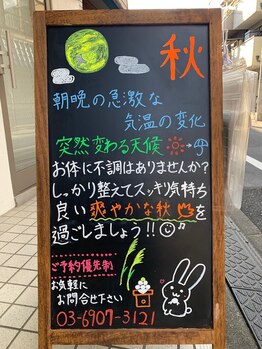 秋
朝晩の急激な
気温の変化
突然変わる天候 →
お体に不調はありませんか?
しっかり整えてスッキリ気持ち
良い爽やかな秋を
過ごしましょう!!
ご予約優先制
お気軽に
お問合せ下さい
03-6907-3121